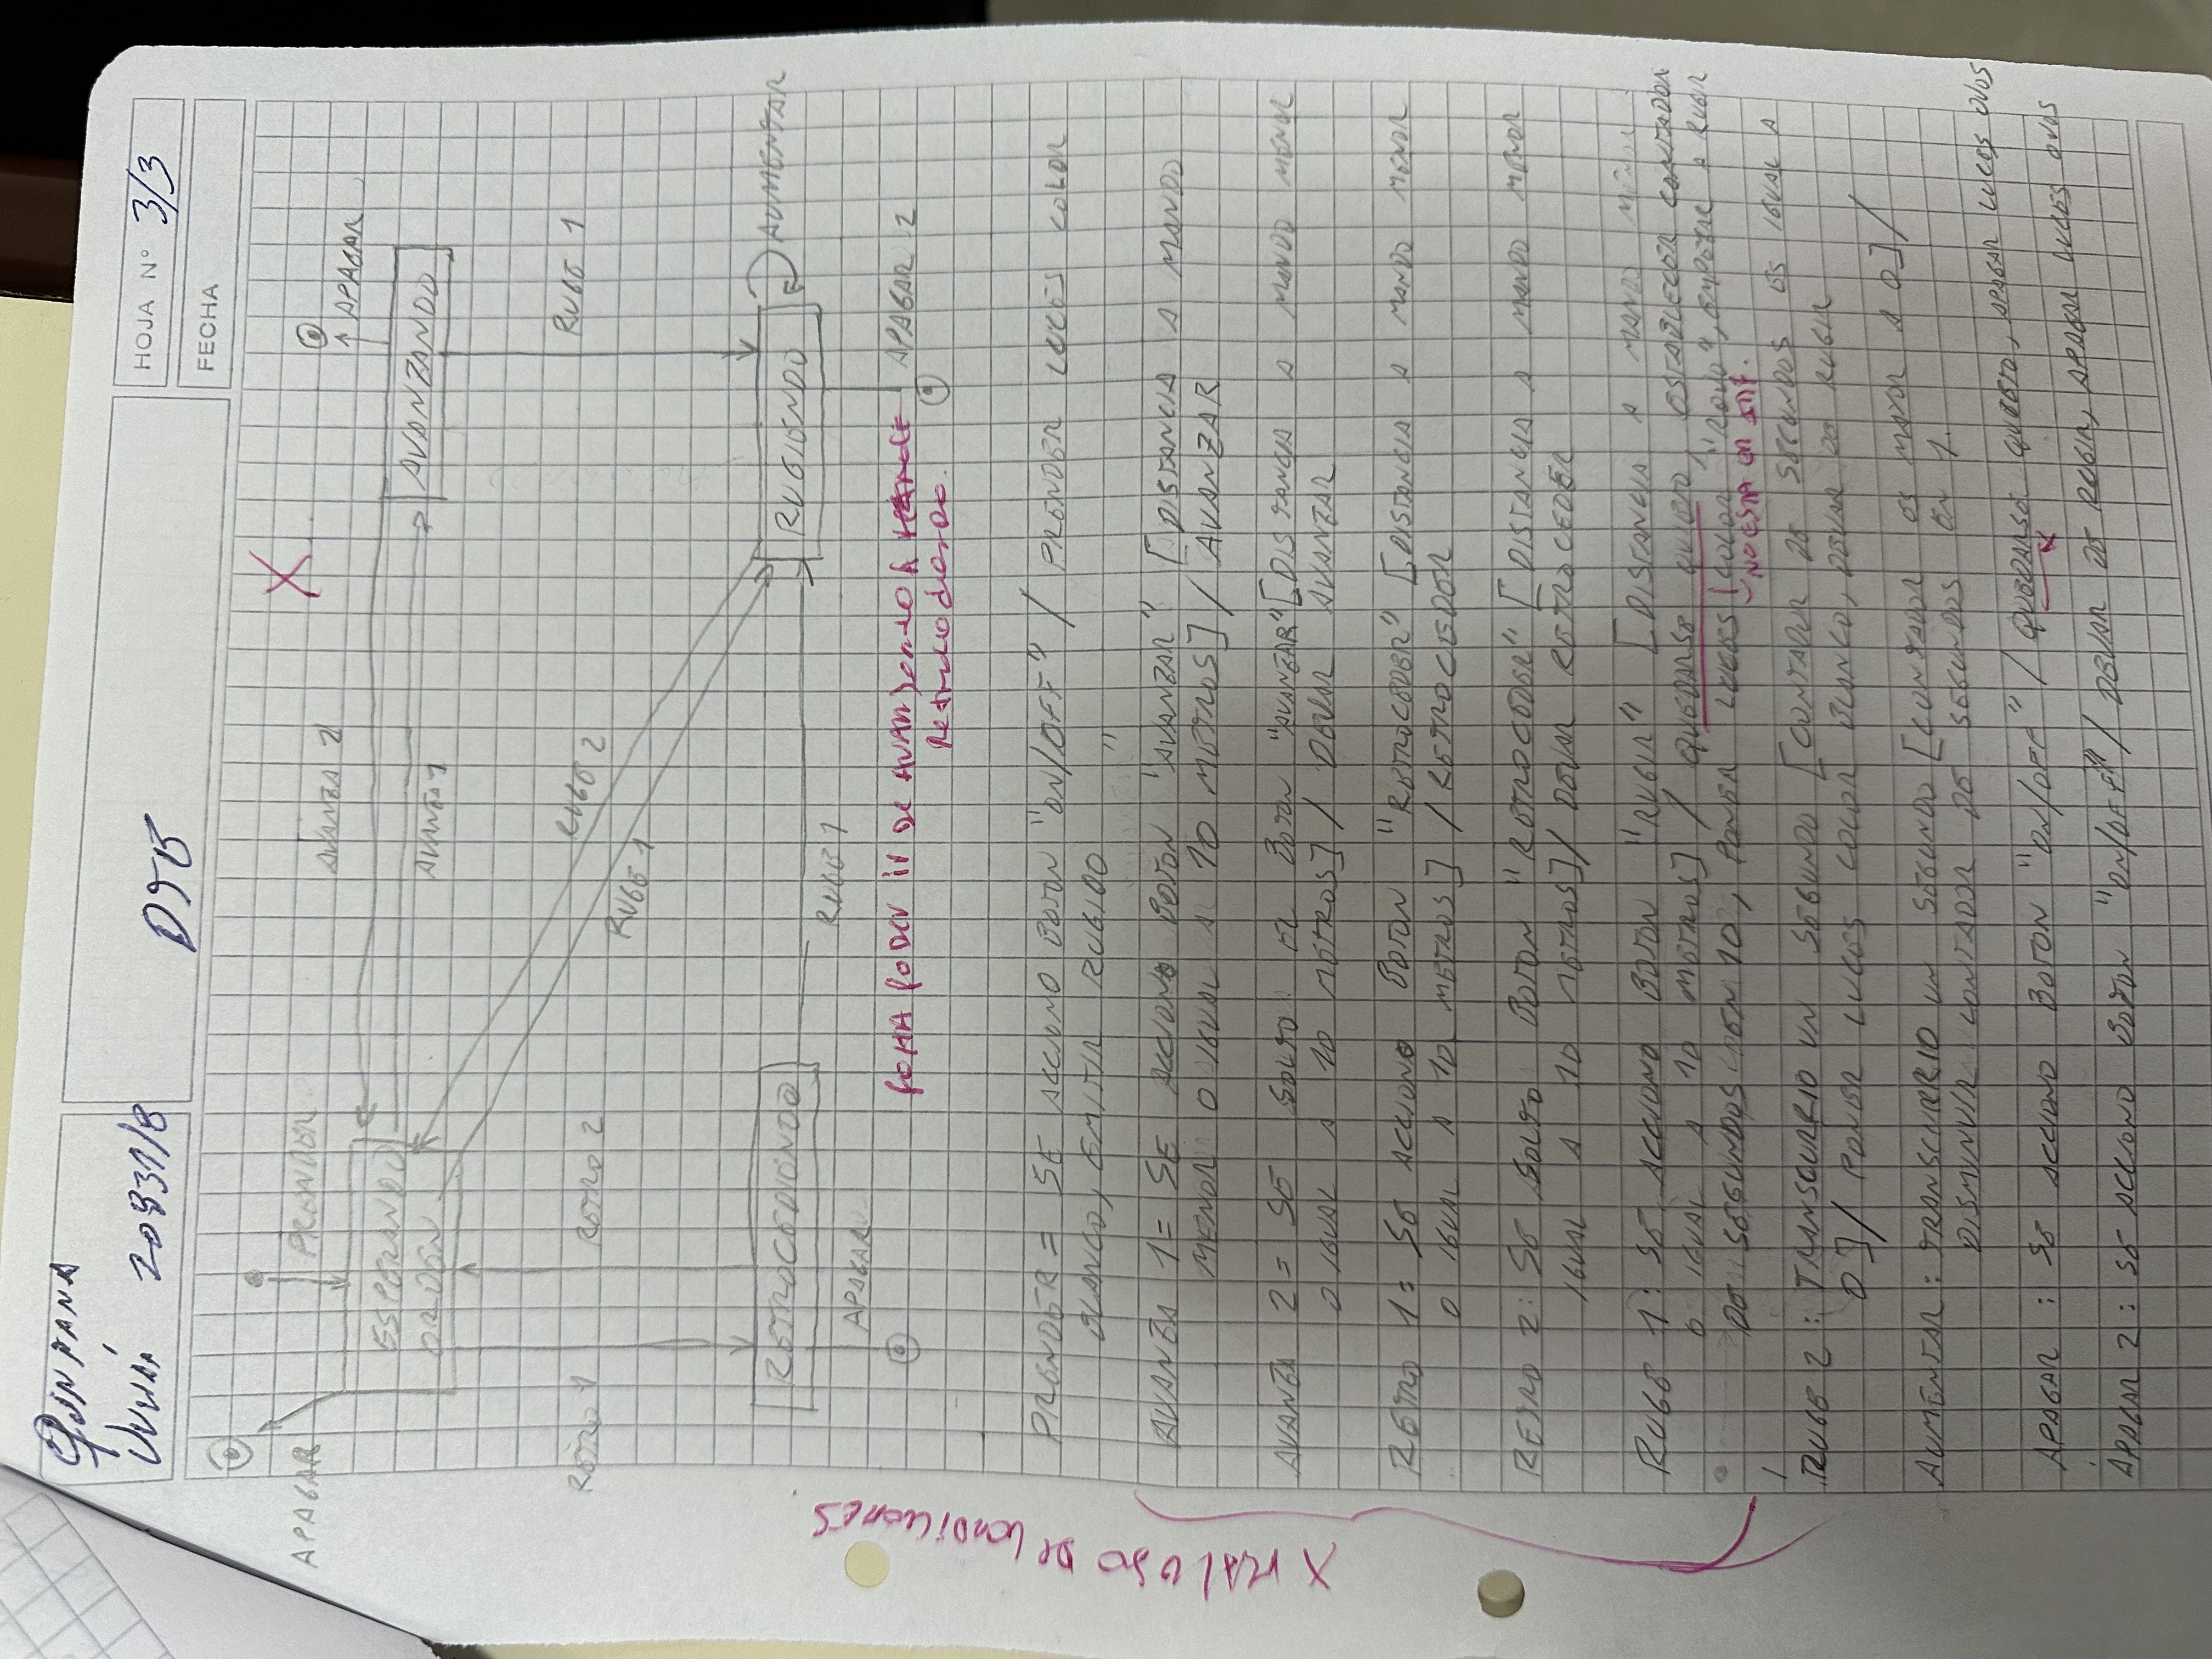 QUINTANA
JULIÁN 20831/8
DTE
HOJA N° 3/3
FECHA
X
APAGAR
PRENDER
AVANZA 2
APAGAR
ESPERANDO
ORDEN
AVANZA 1
AVANZANDO
RETRO 1
RETRO 2
RUGE 2
RUGE 1
RUGE 1
RETROCEDIENDO
RUGIENDO
AUMENTAR
RUGE 1
APAGAR
PODER IR DE AVANZANDO A
Retrocediendo.
APAGAR 2
X MAL USO DE CONDICIONES
PRENDER = SE ACCIONO BOTON "ON/OFF" / PRENDER LUCES COLOR
BLANCO, EMITIR RUGIDO "
AVANZA 1 = SE ACCIONO BOTON "AVANZAR" [DISTANCIA A MANDO
MENOR O IGUAL A 10 METROS] / AVANZAR
AVANZA 2 = SE SOLTO EL BOTON "AVANZAR" [DISTANCIA A MANDO MENOR
O IGUAL A 10 METROS] / DEJAR AVANZAR
RETRO 1 = SE ACCIONO BOTON "RETROCEDER" [DISTANCIA A MANDO MENOR
O IGUAL A 10 METROS] / RETROCEDER
RETRO 2: SE SOLTO BOTON "RETROCEDER" [DISTANCIA A MANDO MENOR
IGUAL A 10 METROS] / DEJAR RETROCEDER
RUGE 1: SE ACCIONO BOTON "RUGIR" [DISTANCIA A MANDO MENOR
O IGUAL A 10 METROS] / QUEDARSE QUIETO, ESTABLECER CONTADOR
DE SEGUNDOS EN 10, PONER LUCES COLOR "ROJO", EMPEZAR A RUGIR
NO ESTA EN
RUGE 2: TRANSCURRIO UN SEGUNDO [CONTADOR DE SEGUNDOS ES IGUAL A
0] / PONER LUCES COLOR BLANCO, DEJAR DE RUGIR
AUMENTAR: TRANSCURRIO UN SEGUNDO [CONTADOR ES MAYOR A 0] /
DISMINUIR CONTADOR DE SEGUNDOS EN 1.
APAGAR: SE ACCIONO BOTON "ON/OFF" / QUEDARSE QUIETO, APAGAR LUCES OJOS
X
APAGAR 2: SE ACCIONO BOTON "ON/OFF" / DEJAR DE RUGIR, APAGAR LUCES OJOS